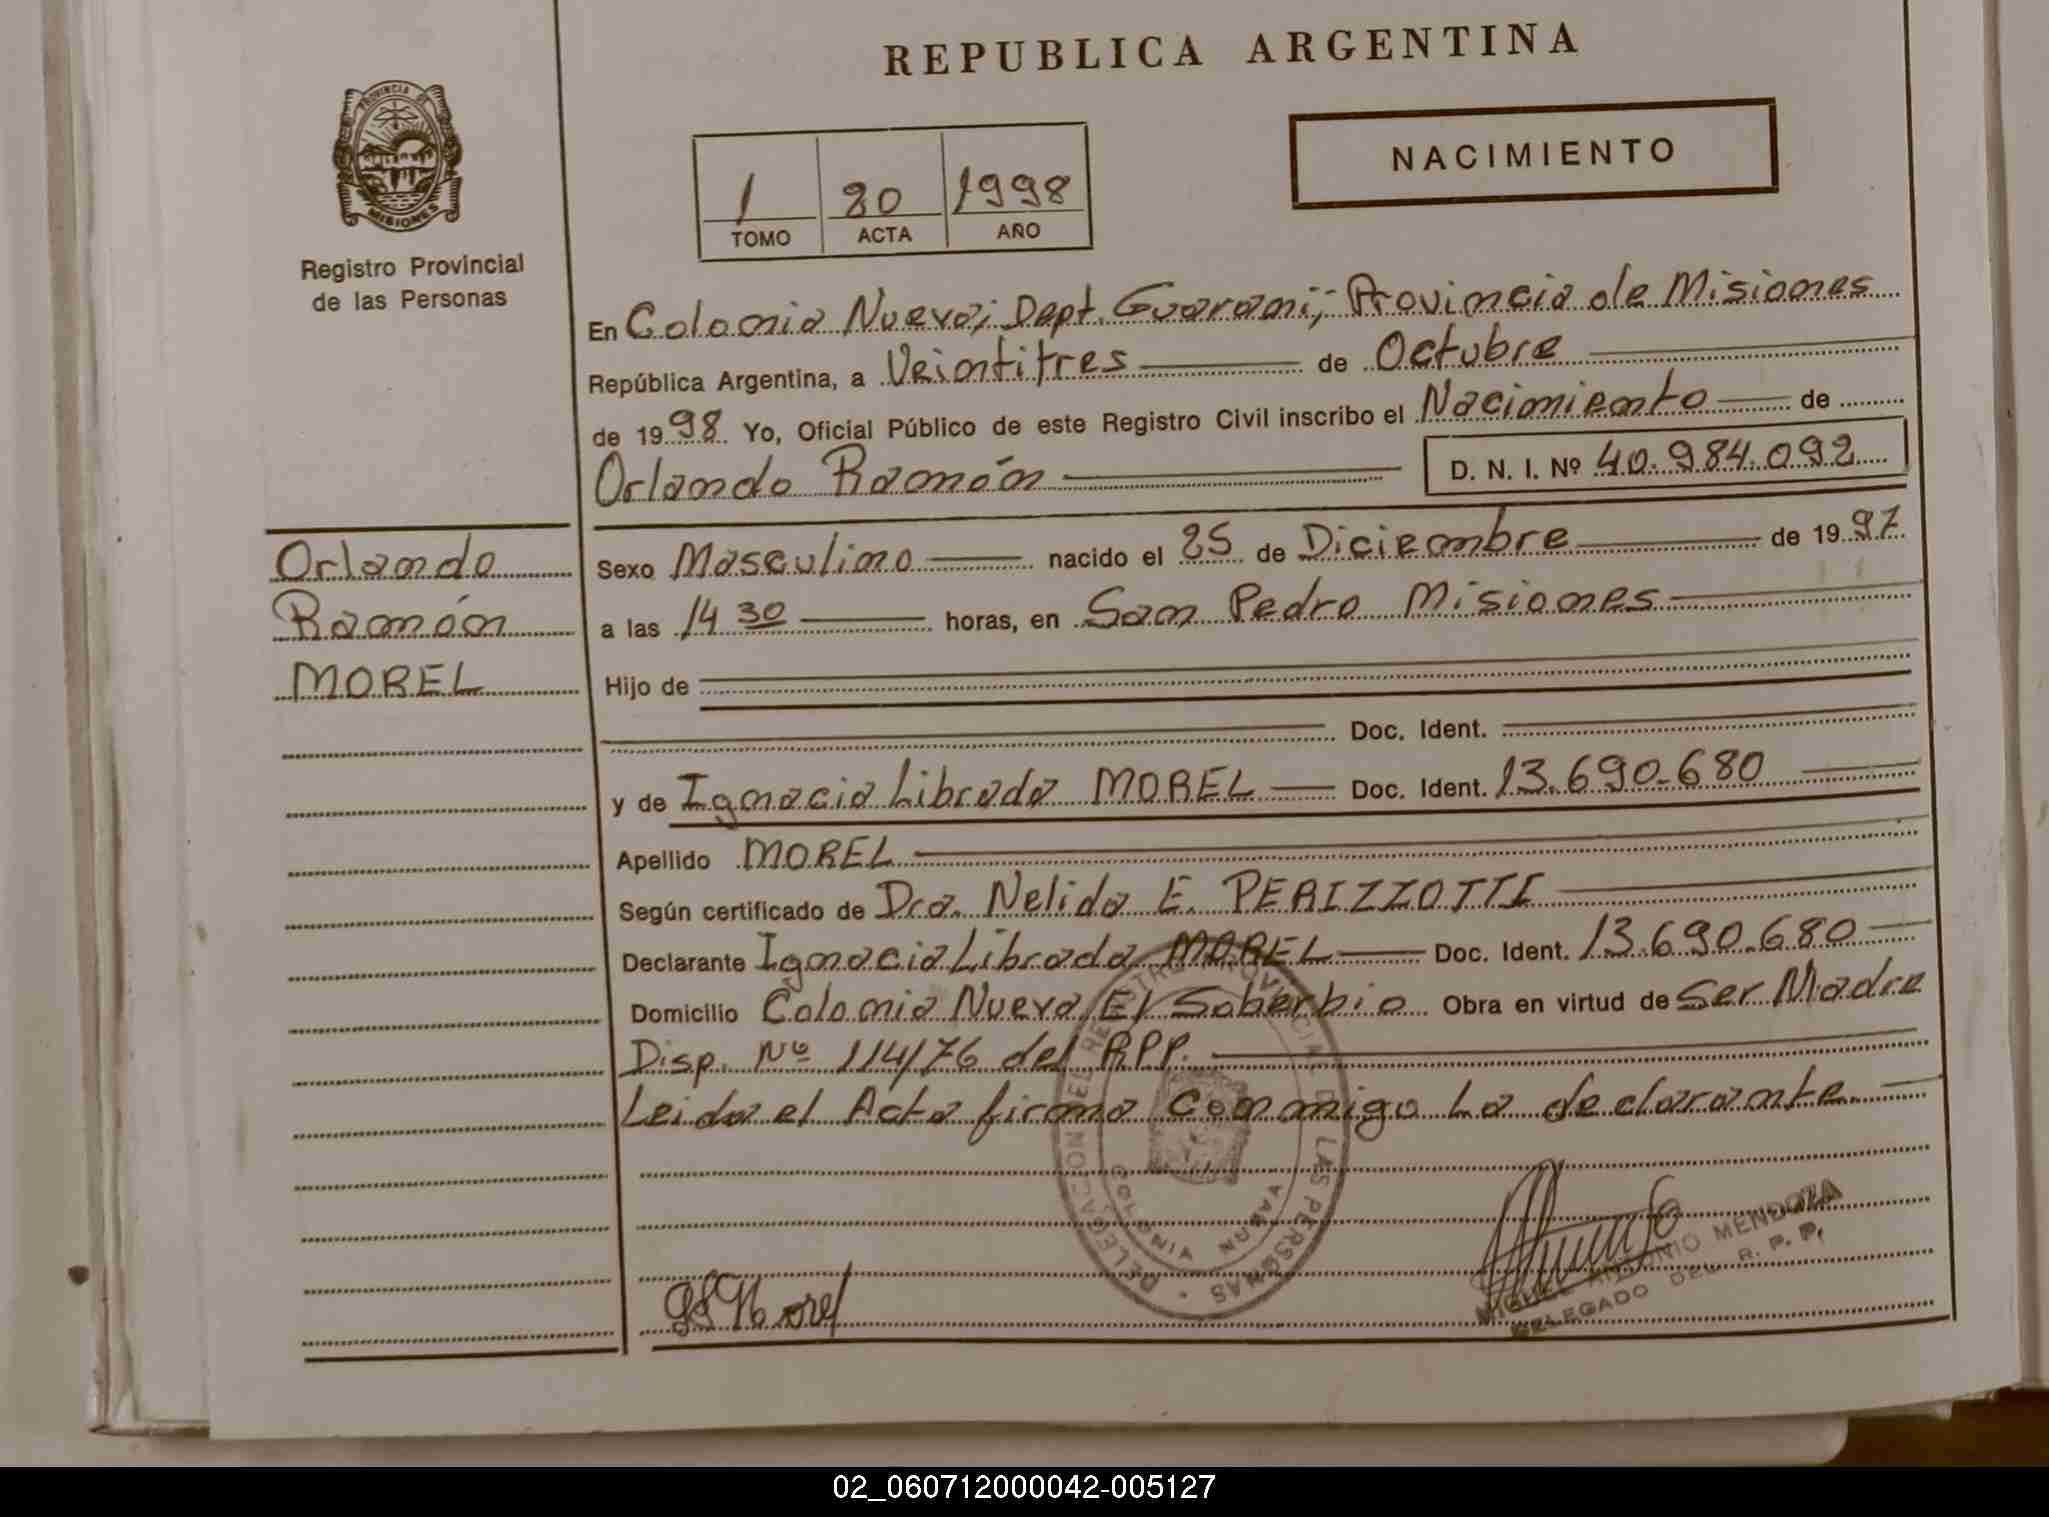 REPUBLICA ARGENTINA
PROVINCIA DE
MISIONES
Registro Provincial
de las Personas
NACIMIENTO
1 20 1998
TOMO ACTA AÑO
En Colonia Nueva; Dept. Guarani; Provincia de Misiones
República Argentina, a Veintitres de Octubre
de 1998 Yo, Oficial Público de este Registro Civil inscribo el Nacimiento de
Orlando Ramón D. N. I. Nº 40.984.092
Orlando
Ramón
MOREL
Sexo Masculino nacido el 25 de Diciembre de 1997
a las 14 30 horas, en San Pedro Misiones
Hijo de
Doc. Ident.
y de Ignacia Librada MOREL Doc. Ident. 13.690.680
Apellido MOREL
Según certificado de Dra. Nelida E. PERIZZOTTI
Declarante Ignacia Librada MOREL Doc. Ident. 13.690.680
Domicilio Colonia Nueva El Soberbio Obra en virtud de Ser Madre
Disp. Nº 114/76 del RPP.
Leida el Acta firma conmigo La declarante.
DELEGACION DEL REGISTRO PROVINCIAL DE LAS PERSONAS
COLONIA NUEVA
Morel
MIGUEL ANTONIO MENDOZA
DELEGADO DEL R. P. P.
02_060712000042-005127